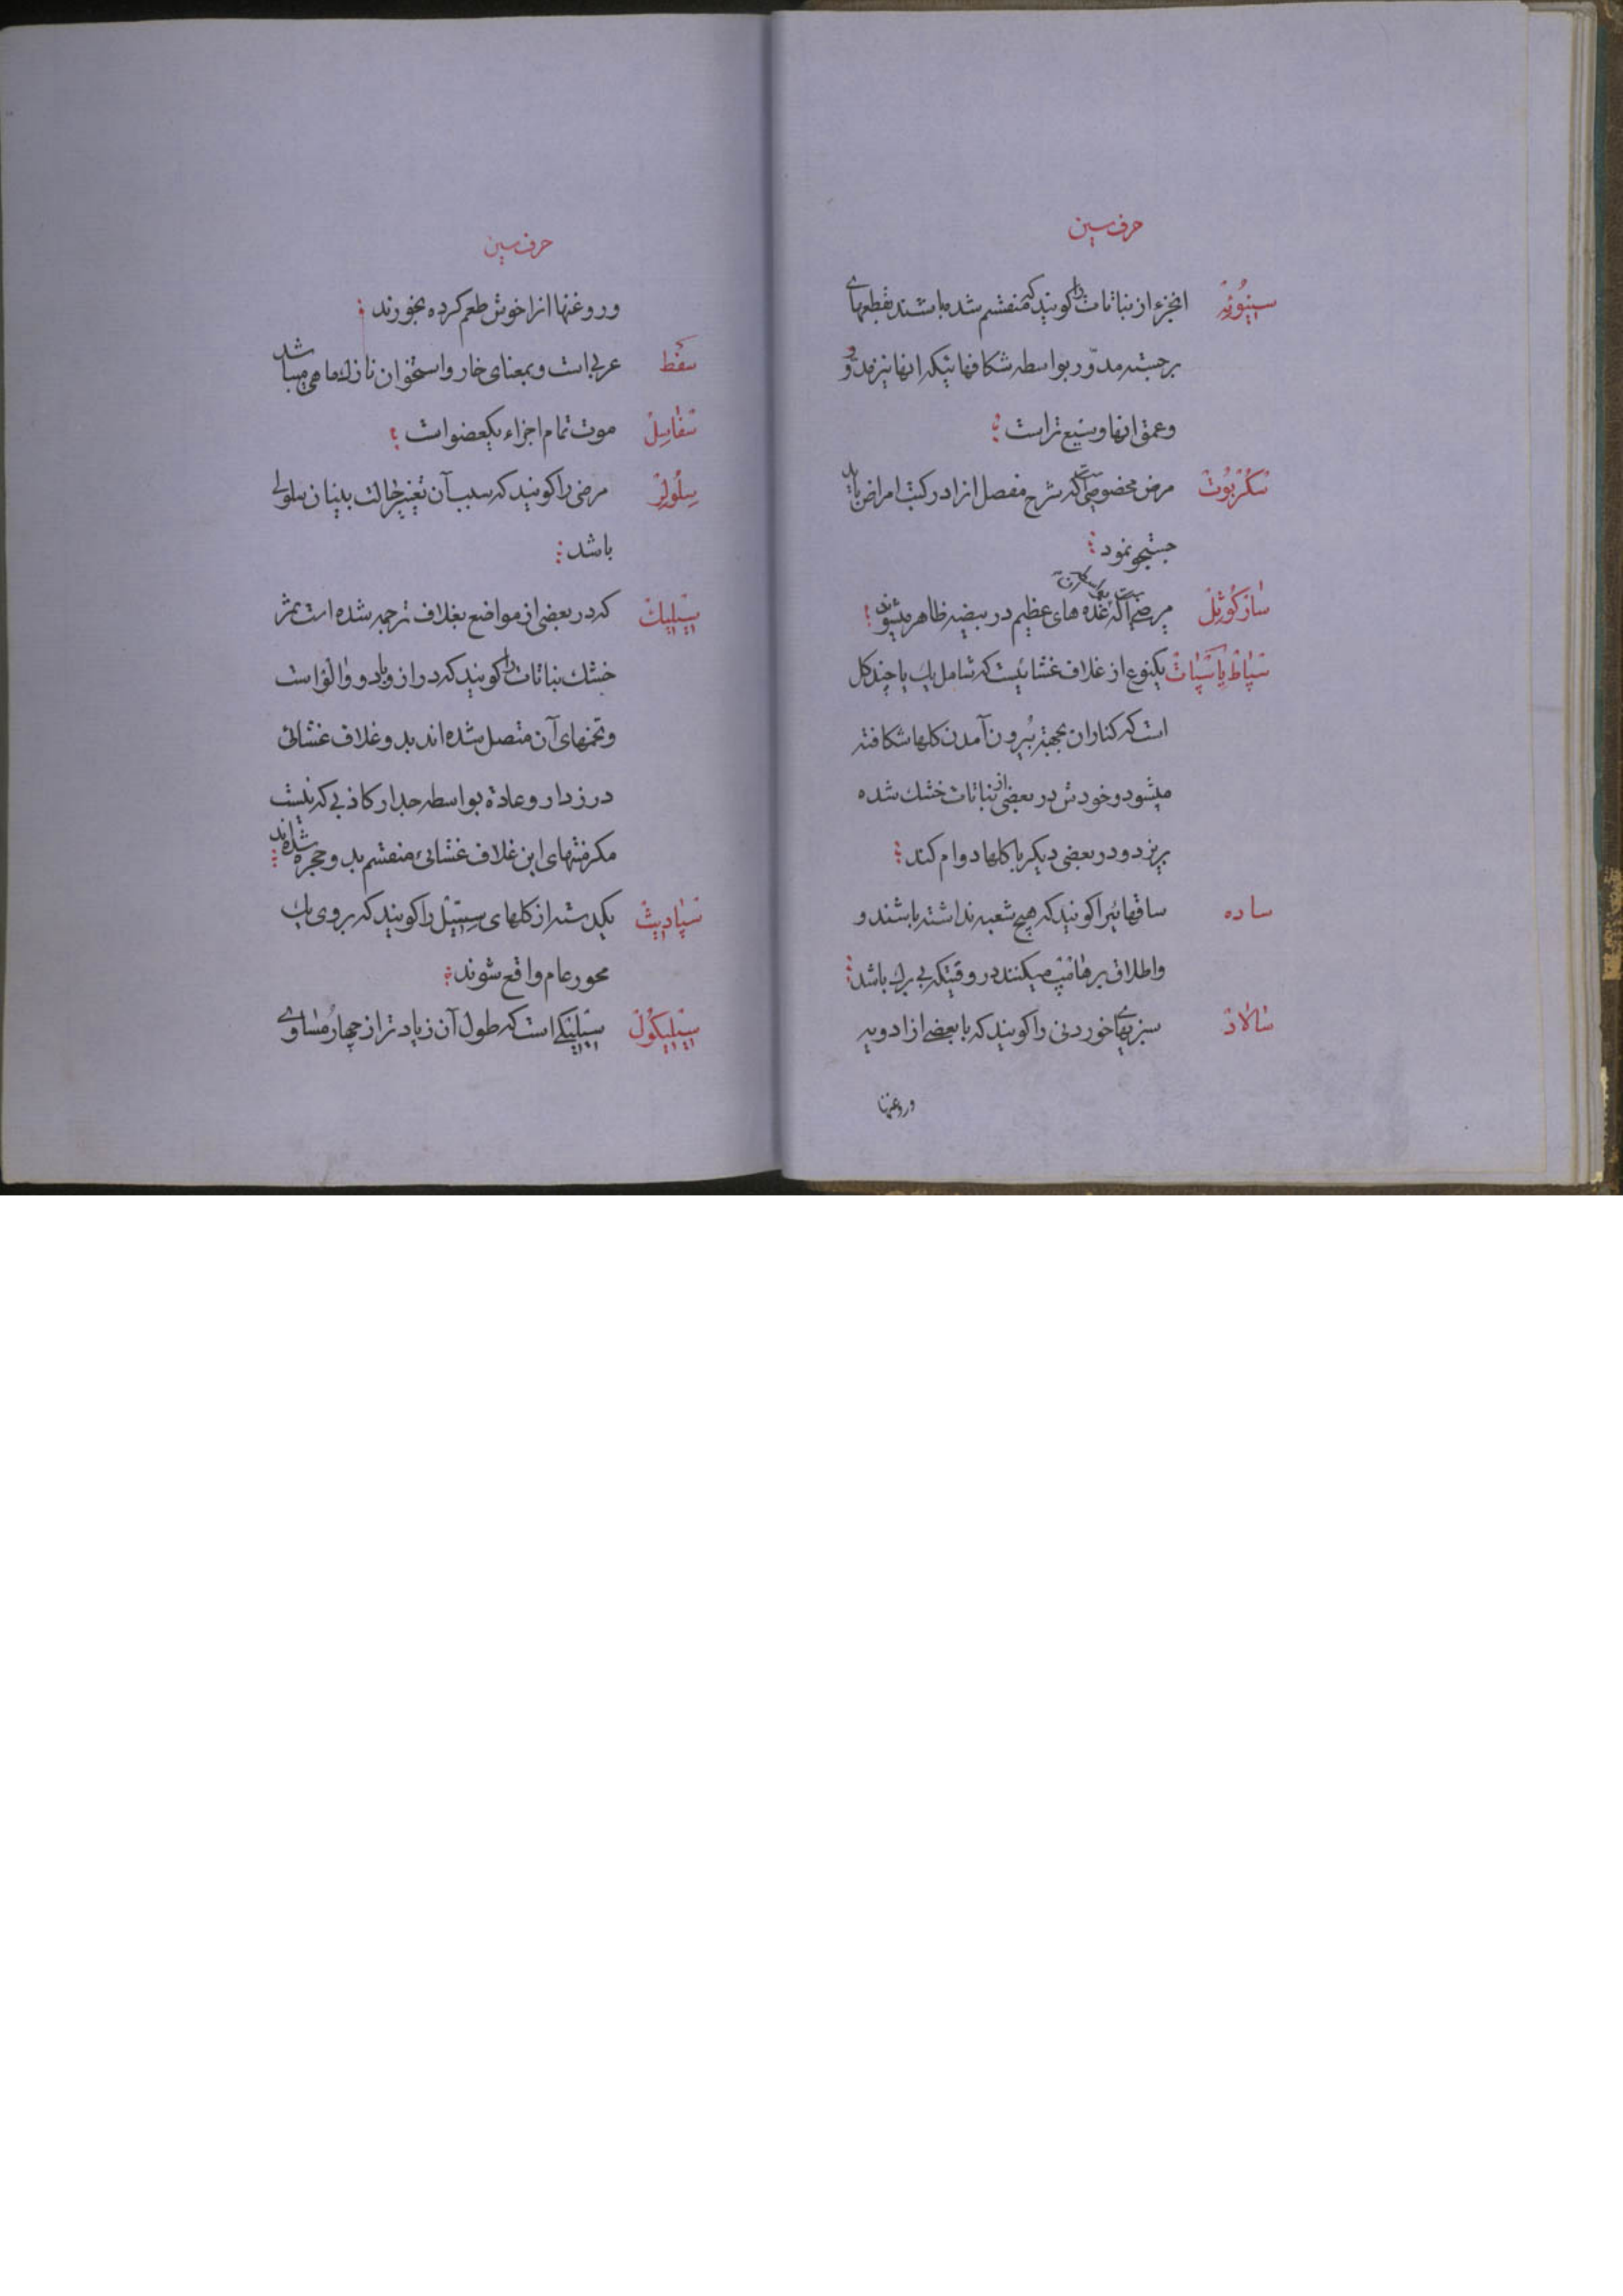 حرف سین
سینوئه انجزء از نباتات را کویند که منقسم شده باشند بقطعهای
برجسته مدوّر بواسطه شکافهائیکه انها نیز مدوّر
و عمق انها وسیع تر است
سکربوت مرض مخصوصی است که شرح مفصل انرا در کتب امراض باید
جستجو نمود
سارکوئل مرضی است که غده های عظیم در بیضه ظاهر میشوند
سپاط یا سپات یکنوع از غلاف غشائیست که شامل یک یا چند کل
است که کناران بجهته بیرون آمدن کلها شکافته
میشود و خودش در بعضی از نباتات خشک شده
بریزد و در بعضی دیکر با کلها دوام کند
ساده ساقهائیرا کویند که هیچ شعبه نداشته باشند و
و اطلاق بر هامپ میکنند در وقتیکه بی برک باشد
سالاد سبزیهای خوردنی را کویند که با بعضی از ادویه
وروغنها
حرف سین
وروغنها انرا خوش طعم کرده بخورند
سفط عربی است و بمعنای خار و استخوان نازک ماهی میباشد
سفاسل موت تمام اجزاء یکعضو است
سلولر مرضی را کویند که سبب آن تغییر حالت بنیان سلولی
باشد
سیلیک که در بعضی از مواضع بغلاف ترجمه شده است ثمر
خشک نباتات را کویند که دراز و با دو والو است
و تخمهای آن متصل شده اند بدو غلاف غشائی
درزدار و عادة بواسطه جدار کاذبی که نیست
مکر منتهای این غلاف غشائی منقسم بدو حجره شده اند
سپادیث یکدسته از کلهای سسیل را کویند که بروی یک
محور عام واقع شوند
سیلیکول سیلیکی است که طول آن زیادتر از چهار مساوی